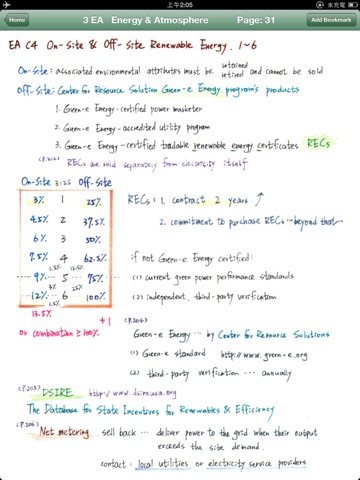 上午2:05
未充電
Index
3 EA Energy & Atmosphere
Page: 31
Add Bookmark
EA C4 On-Site & Off-Site Renewable Energy. 1~6
On-Site: associated environmental attributes must be retained / retired and cannot be sold
Off-Site: Center for Resource Solution Green-e Energy program's products
1. Green-e Energy-certified power marketer
2. Green-e Energy-accredited utility program
3. Green-e Energy-certified tradable renewable energy certificates RECs
RECs are sold separately from electricity itself
On-Site 3:25 Off-Site
3% 1 25%
4.5% 2 37.5%
6% 3 50%
7.5% 4 62.5%
1.5% 12.5%
9% 5 75%
12% 6 100%
13.5% +1
or combination ≥ 100%
RECs: 1. contract 2 years ↑
2. commitment to purchase RECs ... beyond that...
if not Green-e Energy certified:
(1) current green power performance standards
(2) independent, third-party verification
(P.206)
Green-e Energy ... by Center for Resource Solutions
(1) Green-e standard http://www.green-e.org
(2) third-party verification ... annually
(P.205) DSIRE http://www.dsireusa.org
The Database for State Incentives for Renewables & Efficiency
(P.206) Net metering sell back ... deliver power to the grid when their output
exceeds the site demand.
contact: local utilities or electricity service providers